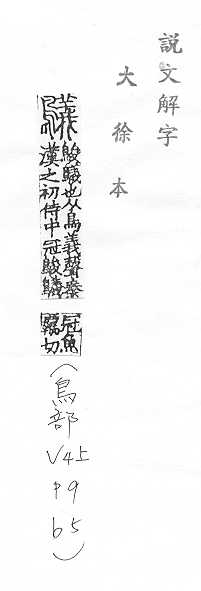 説文解字
大徐本
鸃 鵔鸃也从鳥義聲秦
漢之初侍中冠鵔鸃
冠魚
羈切
(鳥部V4上P9b5)